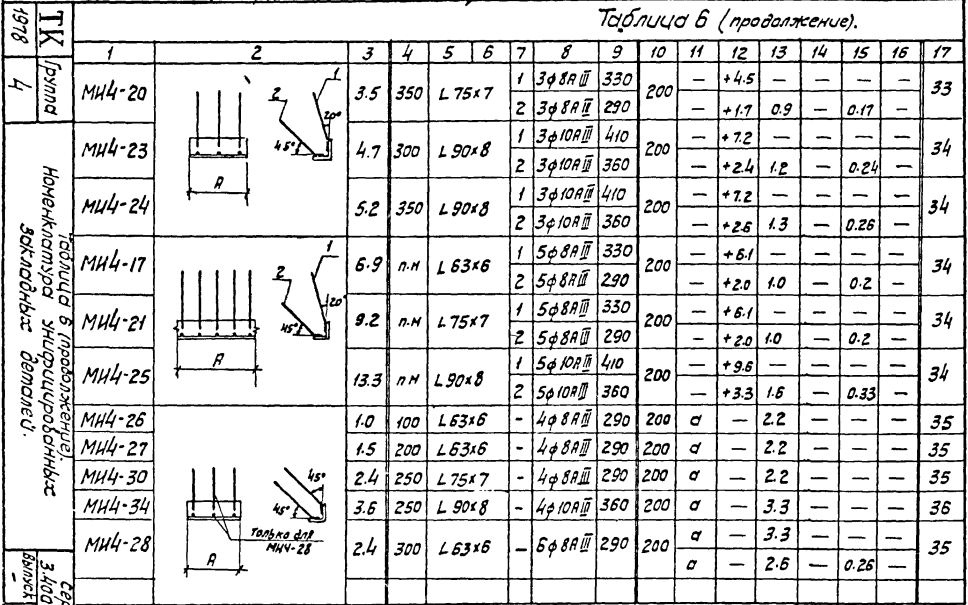 Таблица 6 (продолжение).
1 2 3 4 5 6 7 8 9 10 11 12 13 14 15 16 17
МН4-20 3.5 350 L 75×7 1 3ϕ8АIII 330 200 — +4.5 — — — — 33
2 3ϕ8АIII 290 — +1.7 0.9 — 0.17 —
МН4-23 4.7 300 L 90×8 1 3ϕ10АIII 410 200 — +7.2 — — — — 34
2 3ϕ10АIII 360 — +2.4 1.2 — 0.24 —
МН4-24 5.2 350 L 90×8 1 3ϕ10АIII 410 200 — +7.2 — — — — 34
2 3ϕ10АIII 360 — +2.6 1.3 — 0.26 —
1 2 20° 45° А
МН4-17 6.9 п.м L 63×6 1 5ϕ8АIII 330 200 — +6.1 — — — — 34
2 5ϕ8АIII 290 — +2.0 1.0 — 0.2 —
МН4-21 9.2 п.м L 75×7 1 5ϕ8АIII 330 200 — +6.1 — — — — 34
2 5ϕ8АIII 290 — +2.0 1.0 — 0.2 —
МН4-25 13.3 п.м L 90×8 1 5ϕ10АIII 410 200 — +9.6 — — — — 34
2 5ϕ10АIII 360 — +3.3 1.6 — 0.33 —
1 2 20° 45° А
МН4-26 1.0 100 L 63×6 - 4ϕ8АIII 290 200 а — 2.2 — — — 35
МН4-27 1.5 200 L 63×6 - 4ϕ8АIII 290 200 а — 2.2 — — — 35
МН4-30 2.4 250 L 75×7 - 4ϕ8АIII 290 200 а — 2.2 — — — 35
МН4-34 3.6 250 L 90×8 - 4ϕ10АIII 360 200 а — 3.3 — — — 36
МН4-28 2.4 300 L 63×6 - 6ϕ8АIII 290 200 а — 3.3 — — — 35
а — 2.6 — 0.26 —
45° 45° А
только для
МН4-28
ТК
1978
Группа
4
Таблица 6 (продолжение).
Номенклатура унифицированных
закладных деталей.
3.400
Выпуск
-